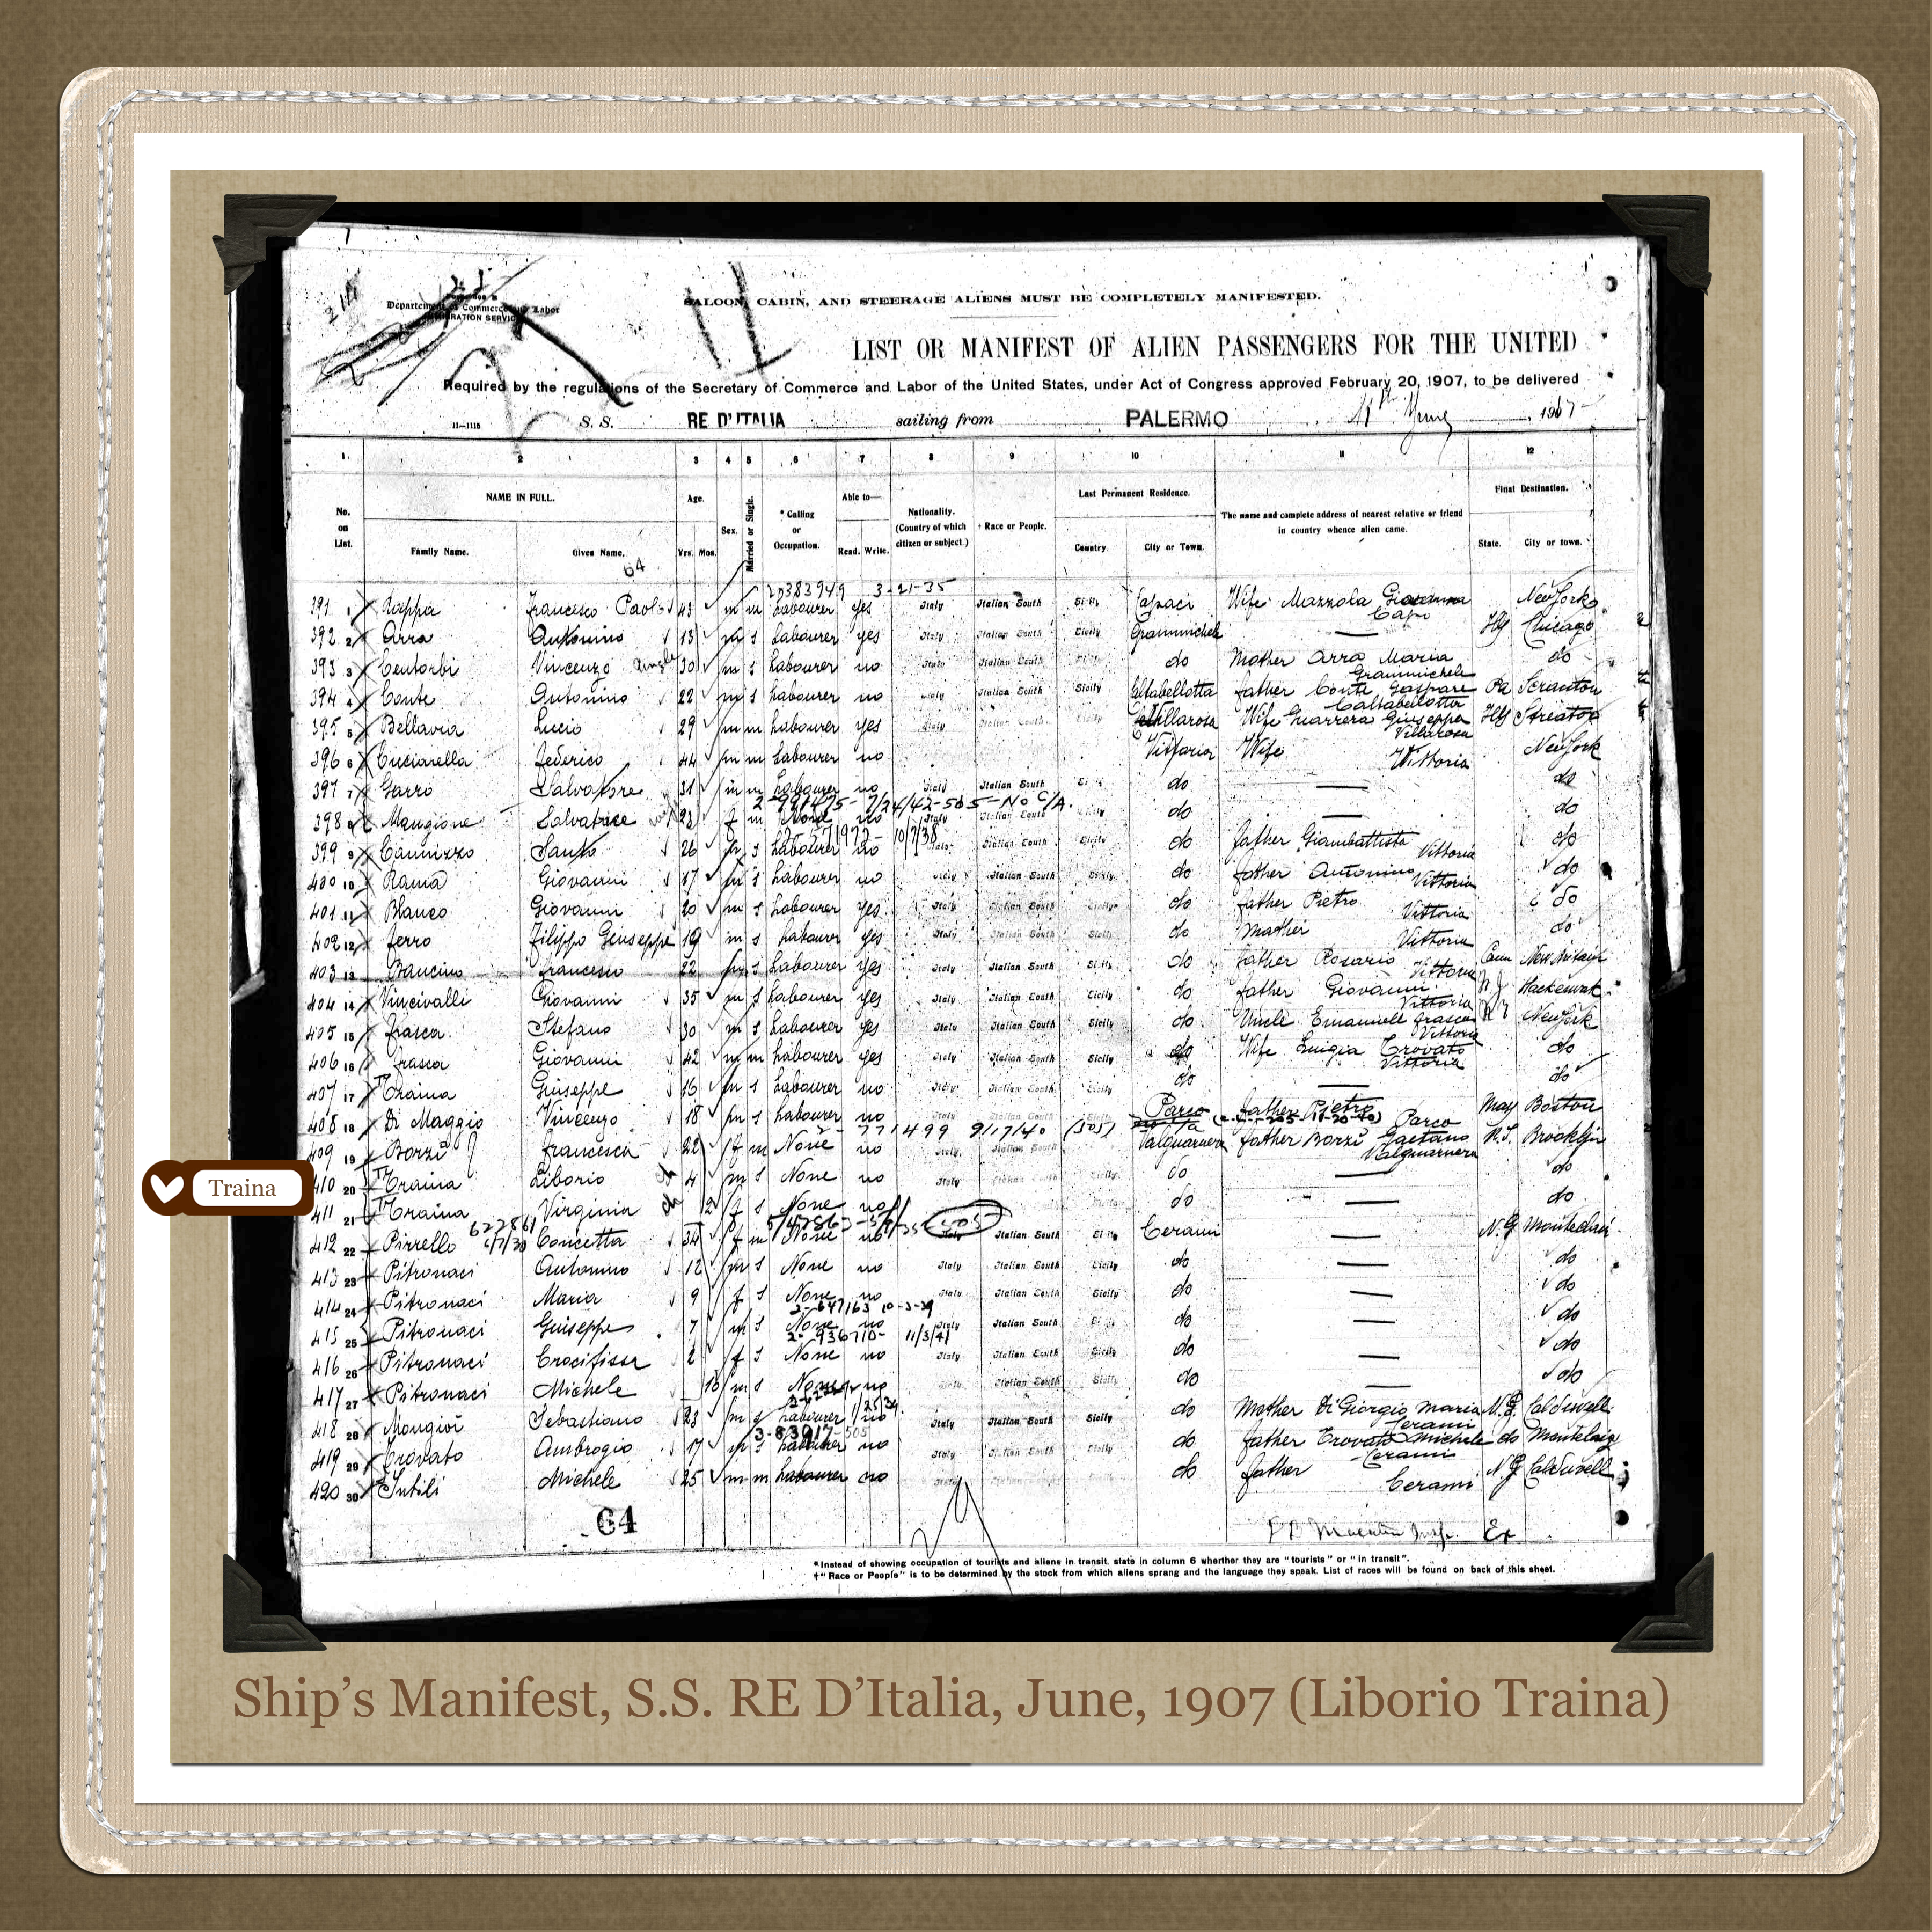 Department of Commerce and Labor
IMMIGRATION SERVICE
SALOON, CABIN, AND STEERAGE ALIENS MUST BE COMPLETELY MANIFESTED.
LIST OR MANIFEST OF ALIEN PASSENGERS FOR THE UNITED
Required by the regulations of the Secretary of Commerce and Labor of the United States, under Act of Congress approved February 20, 1907, to be delivered
11—1118 S. S. RE D'ITALIA sailing from PALERMO June, 1907
1 2 3 4 5 6 7 8 9 10 11 12
No. on List. NAME IN FULL. Family Name. Given Name. Age. Yrs. Mos. Sex. Married or Single. * Calling or Occupation. Able to— Read. Write. Nationality. (Country of which citizen or subject.) † Race or People. Last Permanent Residence. Country. City or Town. The name and complete address of nearest relative or friend in country whence alien came. Final Destination. State. City or town.
64
2-383949 3-21-35
391 1 Francesco Paolo 43 m m Labourer yes Italy Italian South Sicily Capaci Wife Mazzola New York
392 2 Arra Antonino 13 m s Labourer yes Italy Italian South Sicily Grammichele — Chicago
393 3 Centorbi Vincenzo 30 m s Labourer no Italy Italian South do Mother Arra Maria Grammichele do
394 4 Conte Antonino 22 m s Labourer no Italy Italian South Sicily Caltabellotta father Conte Gaspare Caltabellotta Pa Scranton
395 5 Bellavia Lucio 29 m m Labourer yes Italy Italian South Sicily Villarosa Wife Guarrera Giuseppa Villarosa Streator
396 6 Cuciarella Federico 44 m m Labourer no Vittoria Wife Vittoria New York
397 7 Garro Salvatore 31 m m Labourer no Italy Italian South Sicily do — do
7/24/42-505-No C/A.
398 8 Mangione Salvatrice f m None no Italy Italian South do — do
10/7/38
399 9 Cannizzo Santo 26 m s Labourer no Italy Italian South Sicily do father Giambattista Vittoria do
400 10 Rama Giovanni 17 m s Labourer no Italy Italian South Sicily do father Antonino Vittoria do
401 11 Blanco Giovanni 20 m s Labourer yes Italy Italian South Sicily do father Pietro Vittoria do
402 12 Ferro Filippo Giuseppe 19 m s Labourer yes Italy Italian South Sicily do Mother Vittoria do
403 13 Bancino Francesco 22 m s Labourer yes Italy Italian South Sicily do father Rosario Vittoria Conn New Britain
404 14 Vincivalli Giovanni 35 m s Labourer yes Italy Italian South Sicily do father Giovanni Vittoria N J
405 15 Frasca Stefano 30 m s Labourer yes Italy Italian South Sicily do Uncle Emanuell Frasca Vittoria N Y New York
406 16 Frasca Giovanni 42 m m Labourer yes Italy Italian South Sicily do Wife Luigia Trovato Vittoria do
407 17 Traina Giuseppe 16 m s Labourer no Italy Italian South Sicily do — do
408 18 Di Maggio Vincenzo 18 m s Labourer no Italy Italian South Parco father Pietro Parco Mass Boston
2-771499 9/17/40 (505)
409 19 Borzi Francesca 22 f m None no Italy Valguarnera father Borzi Gaetano Valguarnera N.Y. Brooklyn
410 20 Traina Liborio 4 m s None no Italy Italian South Sicily do — do
411 21 Traina Virginia f s None no do — do
412 22 Pirrello Concetta 34 f m None no Italy Italian South Sicily Cerami — N.J Montclair
413 23 Pitronaci Antonino 12 m s None no Italy Italian South Sicily do — do
414 24 Pitronaci Maria 9 f s None no Italy Italian South Sicily do — do
2-647163 10-3-39
415 25 Pitronaci Guiseppe 7 m s None no Italy Italian South do — do
2-936710- 11/3/41
416 26 Pitronaci Crocifissa 2 f s None no Italy Italian South Sicily do — do
417 27 Pitronaci Michele 10 m s None no Italian South Sicily do — do
418 28 Mongioi Sebastiano 23 m s Labourer no Italy Italian South Sicily do Mother Di Giorgio Maria Cerami N.J. Caldwell
419 29 Trovato Ambrogio 17 m s Labourer no Italy Italian South Sicily do father Trovato Michele Cerami do
420 30 Michele 25 m m Labourer no do father Cerami N J Caldwell
64
*Instead of showing occupation of tourists and aliens in transit, state in column 6 wherther they are "tourists" or "in transit".
†"Race or People" is to be determined by the stock from which aliens sprang and the language they speak. List of races will be found on back of this sheet.
Traina
Ship's Manifest, S.S. RE D'Italia, June, 1907 (Liborio Traina)